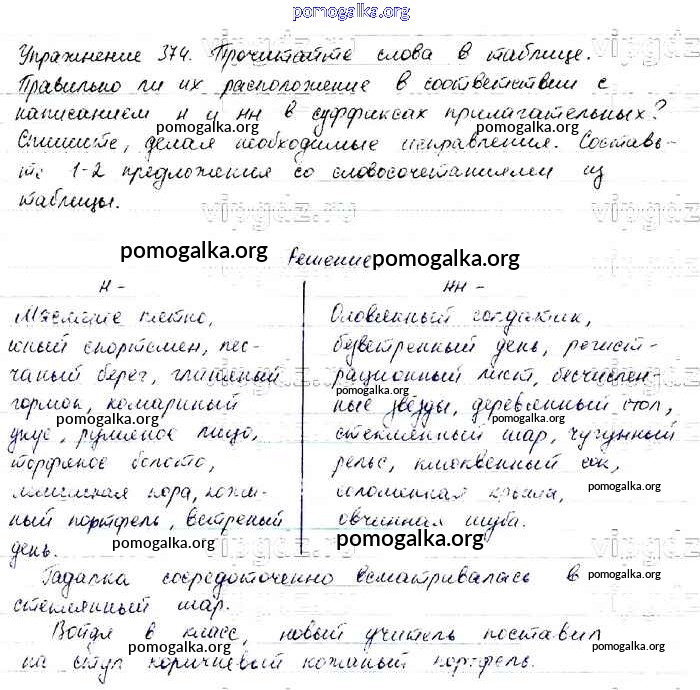 pomogalka.org
Упражнение 374. Прочитайте слова в таблице.
Правильно ли их расположение в соответствии с
написанием н и нн в суффиксах прилагательных?
pomogalka.org pomogalka.org
Спишите, делая необходимые исправления. Составь-
те 1-2 предложения со словосочетаниями из
таблицы.
pomogalka.org Решение pomogalka.org
Н- НН-
пятно, Оловянный солдатик,
юный спортсмен, пес- безветренный день, регист-
чаный берег, глиняный рационный лист, бесчислен-
pomogalka.org
горшок, комариный ные звёзды, деревянный стол,
pomogalka.org pomogalka.org
укус, румяное лицо, стеклянный шар, чугунный
торфяное болото, рельс, клюквенный сок,
мышиная нора, кожа- соломенная крыша,
pomogalka.org
ный портфель, ветреный овчинная шуба.
pomogalka.org pomogalka.org
день.
Гадалка сосредоточенно всматривалась в
pomogalka.org
стеклянный шар.
Войдя в класс, новый учитель поставил
pomogalka.org pomogalka.org
на стул коричневый кожаный портфель.